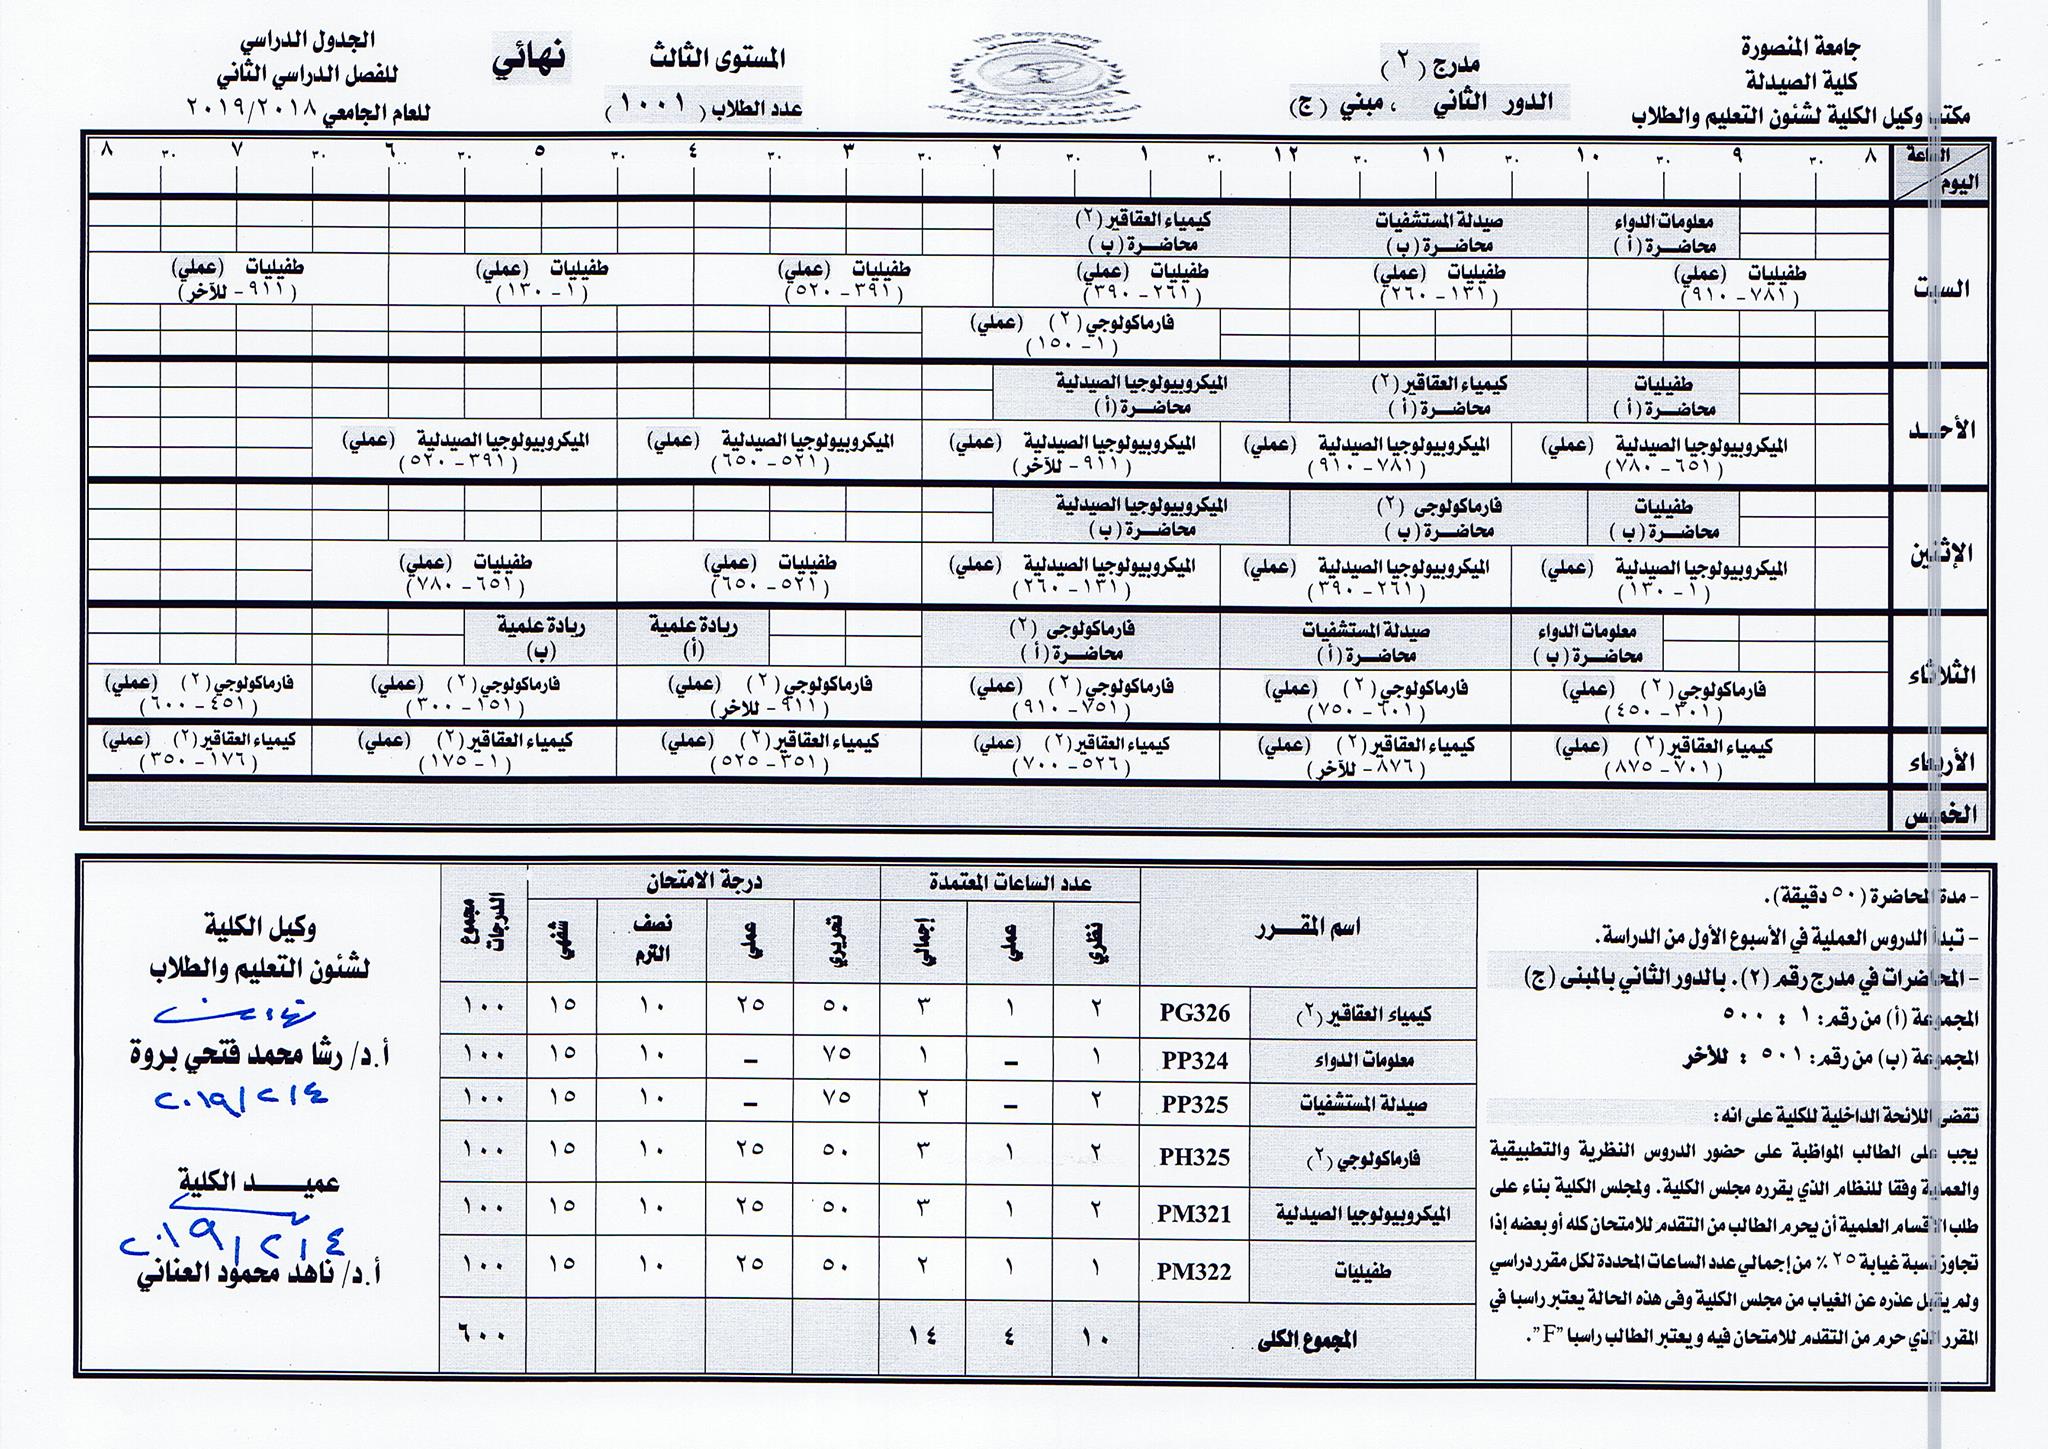 جامعة المنصورة
كلية الصيدلة
مكتب وكيل الكلية لشئون التعليم والطلاب
مدرج (٢)
الدور الثاني ، مبني (ج)
المستوى الثالث
عدد الطلاب (١٠٠١)
نهائي
الجدول الدراسي
للفصل الدراسي الثاني
للعام الجامعي ٢٠١٩/٢٠١٨
الساعة
اليوم
٨ ٣٠ ٩ ٣٠ ١٠ ٣٠ ١١ ٣٠ ١٢ ٣٠ ١ ٣٠ ٢ ٣٠ ٣ ٣٠ ٤ ٣٠ ٥ ٣٠ ٦ ٣٠ ٧ ٣٠ ٨
السبت
معلومات الدواء صيدلة المستشفيات كيمياء العقاقير (٢)
محاضرة (أ) محاضرة (ب) محاضرة (ب)
طفيليات (عملي) طفيليات (عملي) طفيليات (عملي) طفيليات (عملي) طفيليات (عملي) طفيليات (عملي)
(٧٨١ - ٩١٠) (١٣١ - ٢٦٠) (٢٦١ - ٣٩٠) (٣٩١ - ٥٢٠) (١ - ١٣٠) (٩١١ - للآخر)
فارماكولوجي (٢) (عملي)
(١ - ١٥٠)
الأحد
طفيليات كيمياء العقاقير (٢) الميكروبيولوجيا الصيدلية
محاضرة (أ) محاضرة (أ) محاضرة (أ)
الميكروبيولوجيا الصيدلية (عملي) الميكروبيولوجيا الصيدلية (عملي) الميكروبيولوجيا الصيدلية (عملي) الميكروبيولوجيا الصيدلية (عملي) الميكروبيولوجيا الصيدلية (عملي)
(٦٥١ - ٧٨٠) (٧٨١ - ٩١٠) (٩١١ - للآخر) (٥٢١ - ٦٥٠) (٣٩١ - ٥٢٠)
الإثنين
طفيليات فارماكولوجى (٢) الميكروبيولوجيا الصيدلية
محاضرة (ب) محاضرة (ب) محاضرة (ب)
الميكروبيولوجيا الصيدلية (عملي) الميكروبيولوجيا الصيدلية (عملي) الميكروبيولوجيا الصيدلية (عملي) طفيليات (عملي) طفيليات (عملي)
(١ - ١٣٠) (٢٦١ - ٣٩٠) (١٣١ - ٢٦٠) (٥٢١ - ٦٥٠) (٦٥١ - ٧٨٠)
الثلاثاء
معلومات الدواء صيدلة المستشفيات فارماكولوجى (٢) ريادة علمية ريادة علمية
محاضرة (ب) محاضرة (أ) محاضرة (أ) (أ) (ب)
فارماكولوجي (٢) (عملي) فارماكولوجي (٢) (عملي) فارماكولوجي (٢) (عملي) فارماكولوجي (٢) (عملي) فارماكولوجي (٢) (عملي) فارماكولوجي (٢) (عملي)
(٣٠١ - ٤٥٠) (٦٠١ - ٧٥٠) (٧٥١ - ٩١٠) (٩١١ - للآخر) (١٥١ - ٣٠٠) (٤٥١ - ٦٠٠)
الأربعاء
كيمياء العقاقير (٢) (عملي) كيمياء العقاقير (٢) (عملي) كيمياء العقاقير (٢) (عملي) كيمياء العقاقير (٢) (عملي) كيمياء العقاقير (٢) (عملي) كيمياء العقاقير (٢) (عملي)
(٧٠١ - ٨٧٥) (٨٧٦ - للآخر) (٥٢٦ - ٧٠٠) (٣٥١ - ٥٢٥) (١ - ١٧٥) (١٧٦ - ٣٥٠)
الخميس
- مدة المحاضرة (٥٠ دقيقة).
- تبدأ الدروس العملية في الأسبوع الأول من الدراسة.
- المحاضرات في مدرج رقم (٢). بالدور الثاني بالمبنى (ج)
المجموعة (أ) من رقم: ١ : ٥٠٠
المجموعة (ب) من رقم: ٥٠١ : للآخر
تقضى اللائحة الداخلية للكلية على انه:
يجب على الطالب المواظبة على حضور الدروس النظرية والتطبيقية
والعملية وفقا للنظام الذي يقرره مجلس الكلية. ولمجلس الكلية بناء على
طلب الأقسام العلمية أن يحرم الطالب من التقدم للامتحان كله أو بعضه إذا
تجاوز نسبة غيابة ٢٥٪ من إجمالي عدد الساعات المحددة لكل مقرر دراسي
ولم يقبل عذره عن الغياب من مجلس الكلية وفى هذه الحالة يعتبر راسبا في
المقرر الذي حرم من التقدم للامتحان فيه ويعتبر الطالب راسبا "F".
اسم المقرر عدد الساعات المعتمدة درجة الامتحان مجموع الدرجات
نظري عملي إجمالي تحريري عملي نصف الترم شفهي
كيمياء العقاقير (٢) PG326 ٢ ١ ٣ ٥٠ ٢٥ ١٠ ١٥ ١٠٠
معلومات الدواء PP324 ١ – ١ ٧٥ – ١٠ ١٥ ١٠٠
صيدلة المستشفيات PP325 ٢ – ٢ ٧٥ – ١٠ ١٥ ١٠٠
فارماكولوجي (٢) PH325 ٢ ١ ٣ ٥٠ ٢٥ ١٠ ١٥ ١٠٠
الميكروبيولوجيا الصيدلية PM321 ٢ ١ ٣ ٥٠ ٢٥ ١٠ ١٥ ١٠٠
طفيليات PM322 ١ ١ ٢ ٥٠ ٢٥ ١٠ ١٥ ١٠٠
المجموع الكلى ١٠ ٤ ١٤ ٦٠٠
وكيل الكلية
لشئون التعليم والطلاب
أ.د/ رشا محمد فتحي بروة
٢٠١٩/٢/٤
عميد الكلية
٢٠١٩/٢/٤
أ.د/ ناهد محمود العناني